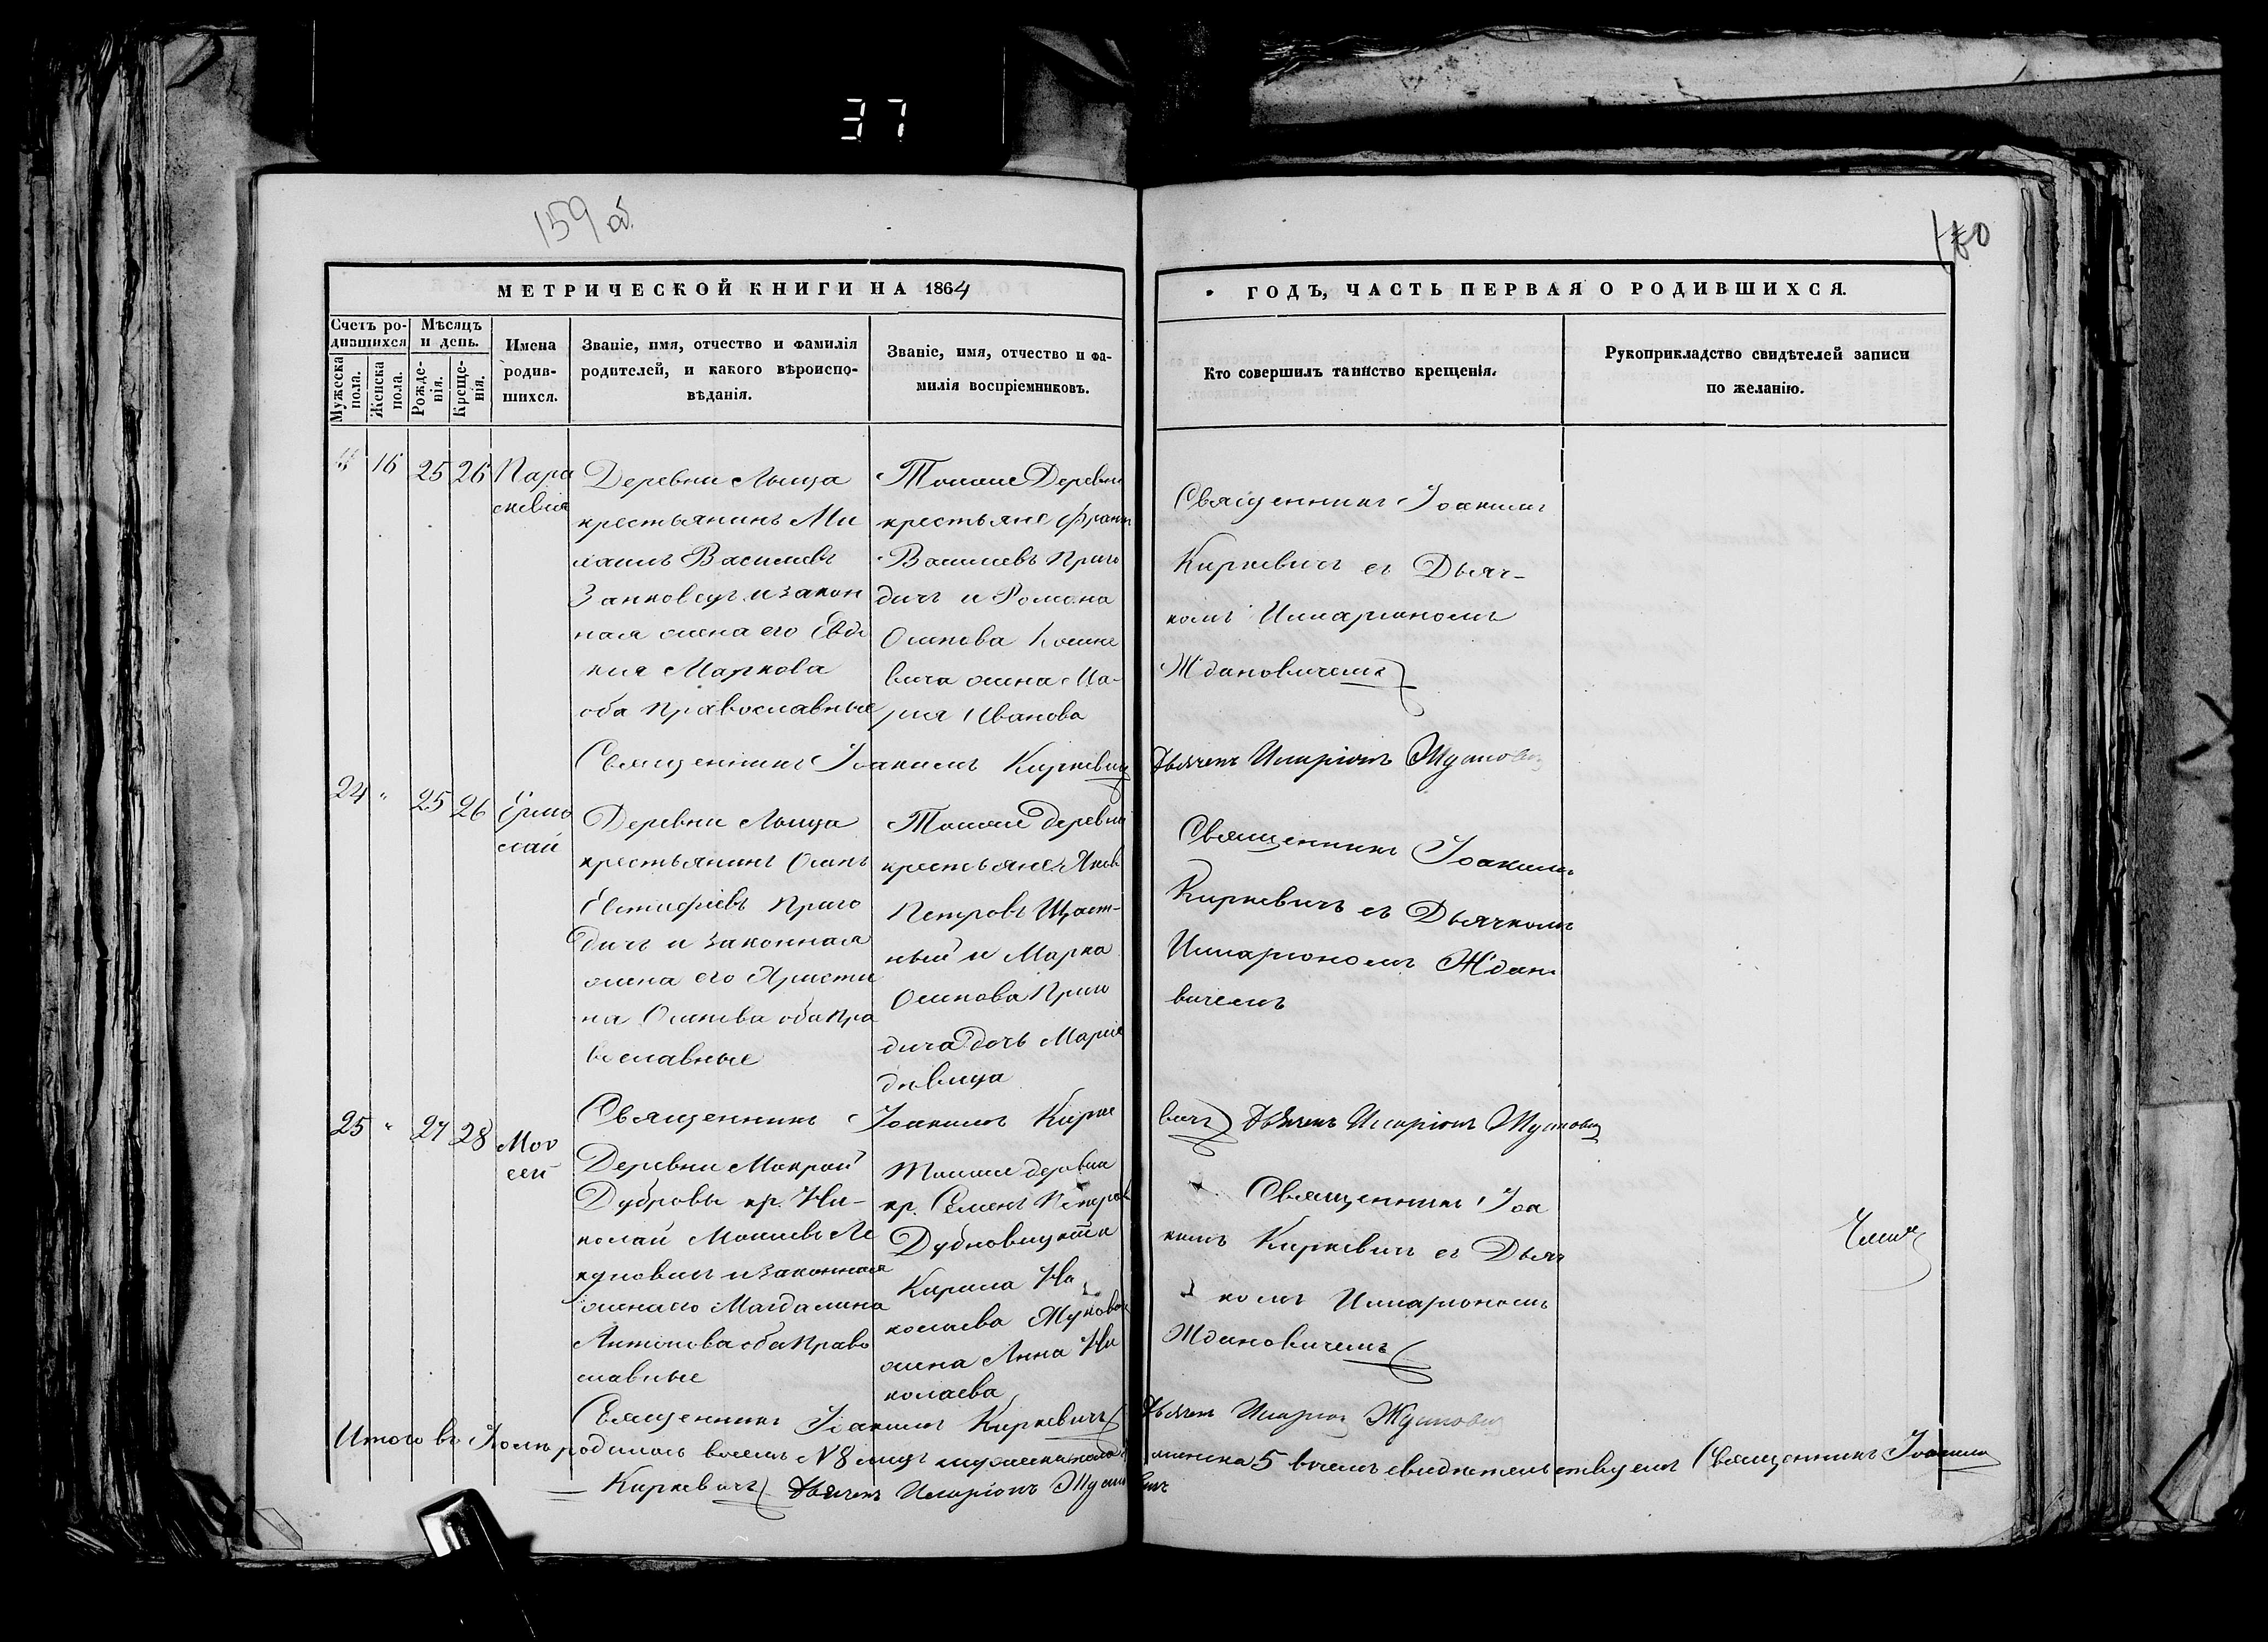 37
159 об.
160
МЕТРИЧЕСКОЙ КНИГИ НА 1864
ГОДЪ, ЧАСТЬ ПЕРВАЯ О РОДИВШИХСЯ.
Счетъ ро-
дившихся
Мужеска
пола.
Женска
пола.
Мѣсяцъ
и день.
Рожде-
нія.
Креще-
нія.
Имена
родив-
шихся.
Званіе, имя, отчество и фамилія
родителей, и какого вѣроиспо-
вѣданія.
Званіе, имя, отчество и фа-
милія воспріемниковъ.
Кто совершилъ таинство крещенія.
Рукоприкладство свидѣтелей записи
по желанію.
" 16 25 26
Пара
скевія
Деревни Лыща
крестьянинъ Ми
хаилъ Василевъ
Занков и закон
ная жена его Евдо
кия Маркова
оба Православные
Тойже Деревни
крестьяне
Василевъ Приго
дичъ и Романа
Осипова
вича жена Ма-
рия Иванова
Священникъ Іоакимъ
Киркевичъ съ Дьяч-
комъ Иларіономъ
Ждановичемъ
Священникъ Іоакимъ Киркевичъ Дьячекъ Иларіонъ Ждановичъ
24 " 25 26
Ермо
лай
Деревни Лыща
крестьянинъ Осипъ
Евстафіевъ Приго
дичъ и законная
жена его Христи
на Осипова оба Пра
вославные
Тойже деревни
крестьяне Яковъ
Петровъ Щаст-
ный и Марка
Осипова Приго
дича дочь Марія
дѣвица
Священникъ Іоакимъ
Киркевичъ съ Дьячкомъ
Иларіономъ Ждано
вичемъ
Священникъ Іоакимъ Кирке
вичъ Дьячекъ Иларіонъ Ждановичъ
25 " 27 28
Мой
сей
Деревни Мокрой
Дубровы кр. Ни-
колай
и законная
жена его Магдалина
Антонова оба Право
славные
Тойже деревни
кр. Семенъ Петровъ
Кирила Ни
колаева
жена Анна Ни
колаева
Священникъ Іоа
кимъ Киркевичъ съ Дьяч
комъ Иларіономъ
Ждановичемъ
Священникъ Іоакимъ Киркевичъ Дьячекъ Иларіонъ Ждановичъ
Итого въ родилось 8 мужеска пола женска 5 свидѣтельствуемъ Священникъ Іоакимъ
Киркевичъ Дьячекъ Иларіонъ Ждановичъ